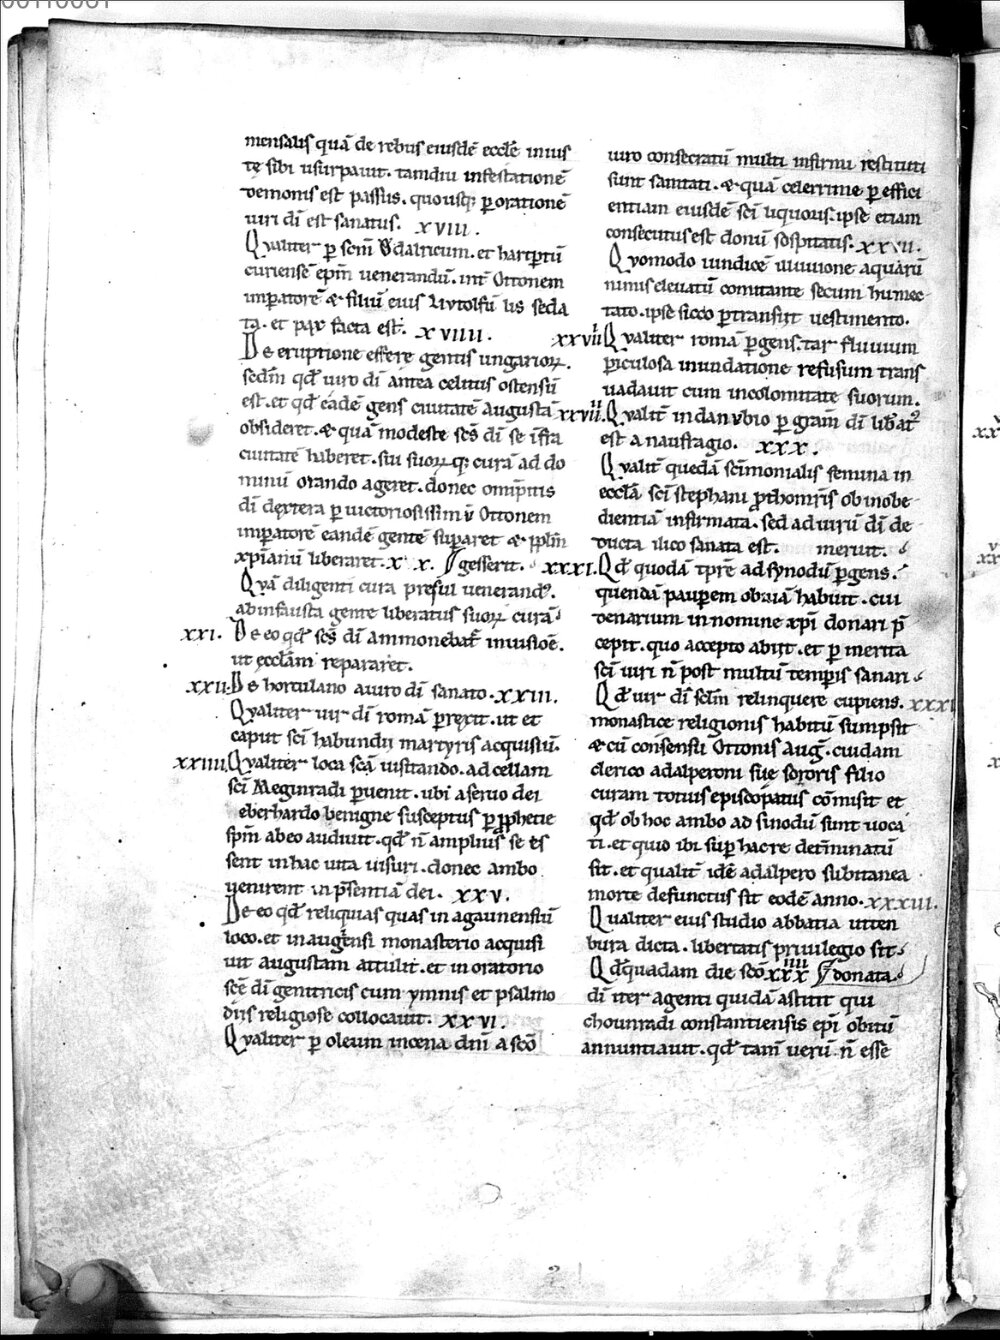 mensalis quā de rebus eiusdē ecctē inius
tę sibi usurpauit. tamdiu infestationē
demonis est passus. quousq; p orationē
uiri dī est sanatus. xviii.
Qualiter p scm̄ Vdalricum. et hartptū
curiensē epm̄ uenerandū. int̄ Ottonem
impatorē & filiū eius Liutolfū lis seda
ta. et pax facta est. xviiii.
De eruptione efferę gentis ungarioꝝ.
sedm̄ qd̄ uiro dī antea celitus ostensū
est. et qd̄ eadē gens ciuitatē augustā
obsideret. & quā modeste scs̄ dī se īfra
ciuitatē haberet. sui suoꝝq; curā ad do
minū orando ageret. donec omīptis
dī dextera p uictoriosissimū Ottonem
impatorē eandē gentē suparet & pplm̄
xpianū liberaret. xx. gesserit.
Quā diligenti cura presul uenerandꝰ.
ab infausta gente liberatus suoꝝ curā
xxi. De eo qd̄ scs̄ dī ammonebat̄ in uisiōe.
ut ęcclām repararet.
xxii. De hortulano a uiro dī sanato. xxiii.
Qualiter uir dī romā prexit. ut et
caput scī habundii martyris acquisiū.
xxiiii. Qualiter loca scā uisitando. ad cellam
scī Meginradi puenit. ubi a seruo dei
eberhardo benigne susceptus p pphetie
spm̄ ab eo audiuit. qd̄ n̄ amplius se eēs
sent in hac uita uisuri. donec ambo
uenirent in psentiā dei. xxv.
De eo qd̄ reliquias quas in agaunensiū
loco. et in augensi monasterio acquisi
uit augustam attulit. et in oratorio
scē dī genitricis cum ymnis et psalmo
diis religiose collocauit. xxvi.
Qualiter p oleum in cena dnī a scō
uiro consecratū multi infirmi restituti
sunt sanitati. & quā celerrime p effici
entiam eiusdē scī liquoris. ipse etiam
consecutus est donū sospitatis. xxvii.
Quomodo uindicē illuuione aquarū
nimis eleuatū comitante secum humec
tato. ipse sicco ptransiit uestimento.
xxviii Qualiter romā pgens. tar fluuium
piculosa inundatione refusum trans
uadauit cum incolomitate suorum.
xxviiii. Qualit̄ in danubio p gram̄ dī libatꝰ
est a naufragio. xxx.
Qualit̄ quedā scīmonialis femina in
ecclā scī stephani pthomris̄ ob inobe
dientiā infirmata. sed ad uirū dī de
ducta ilico sanata est. meruit.
xxxi. Qd̄ quodā tpre ad synodū pgens.
quendā pauperem obuiā habuit. cui
denarium in nomine xpī donari p̄
cepit. quo accepto abiit. et p merita
scī uiri n̄ post multū temporis sanari
Qd̄ uir dī sclm̄ relinquere cupiens. xxxii
monasticę religionis habitū sumpsit
& cū consensu Ottonis Aug. cuidam
clerico adalperoni suę sororis filio
curam totius episcopatus cōmisit et
qd̄ ob hoc ambo ad sinodū sunt uoca
ti. et quid ibi sup hac re detminatū
sit. et qualit̄ idē adalpero subitanea
morte defunctus sit eodē anno. xxxiii.
Qualiter eius studio abbatia utten
bura dicta. libertatis priuilegio sit
Qd̄ quadam die scō xxxiiii donata.
dī iter agenti quidā astitit qui
chounradi constantiensis epī obitū
annuntiauit. qd̄ tam̄ uerū n̄ esse